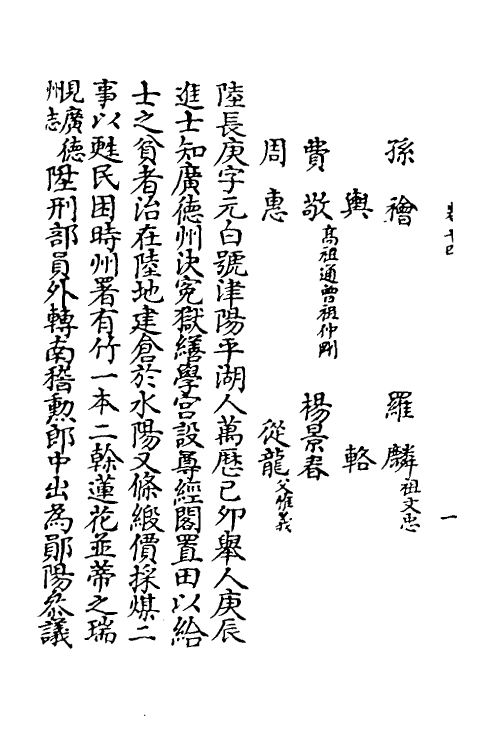 卷十四
一
孫襘　羅麟祖文忠
輿　輅
費敬高祖通曾祖仲剛　楊景春
周惠　從龍父惟義
陸長庚字元白號津陽平湖人萬歷己卯舉人庚辰
進士知廣德州決冤獄繕學宮設尊經閣置田以給
士之貧者治在陸地建倉於水陽又條緞價採煤二
事以甦民困時州署有竹一本二榦蓮花並蒂之瑞
見廣德州志陞刑部員外轉南稽勲郎中出為鄖陽叅議